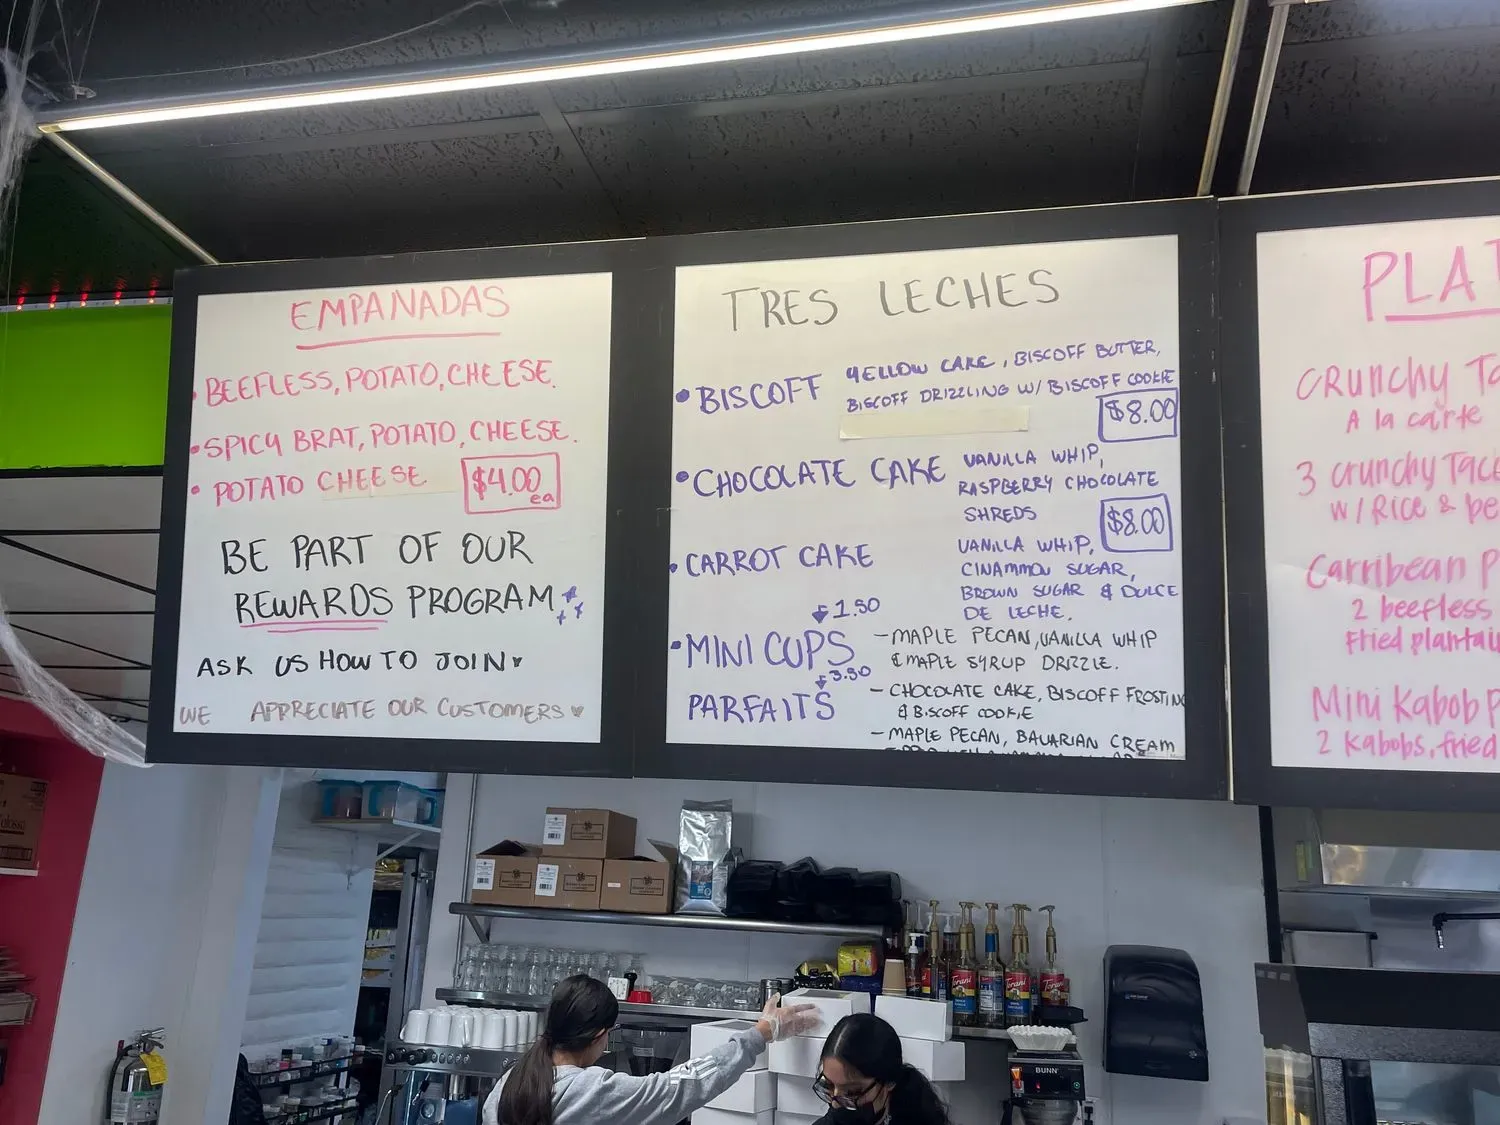 EMPANADAS
• BEEFLESS, POTATO, CHEESE.
• SPICY BRAT, POTATO, CHEESE.
• POTATO CHEESE $4.00 ea
BE PART OF OUR
REWARDS PROGRAM
ASK US HOW TO JOIN
WE APPRECIATE OUR CUSTOMERS
TRES LECHES
• BISCOFF YELLOW CAKE, BISCOFF BUTTER,
BISCOFF DRIZZLING W/ BISCOFF COOKIE
$8.00
• CHOCOLATE CAKE VANILLA WHIP,
RASPBERRY CHOCOLATE
SHREDS
$8.00
• CARROT CAKE VANILLA WHIP,
CINAMMON SUGAR,
BROWN SUGAR & DULCE
DE LECHE.
1.50
• MINI CUPS - MAPLE PECAN, VANILLA WHIP
& MAPLE SYRUP DRIZZLE.
3.50
PARFAITS - CHOCOLATE CAKE, BISCOFF FROSTIN
& BISCOFF COOKIE
- MAPLE PECAN, BAVARIAN CREAM
PLA
CRUNCHY TA
A la carte
3 crunchy Tac
w/ Rice & be
Carribean P
2 beefless
Fried plantai
Mini Kabob P
2 Kabobs, fried
Torani
Torani
Torani
Torani
BUNN